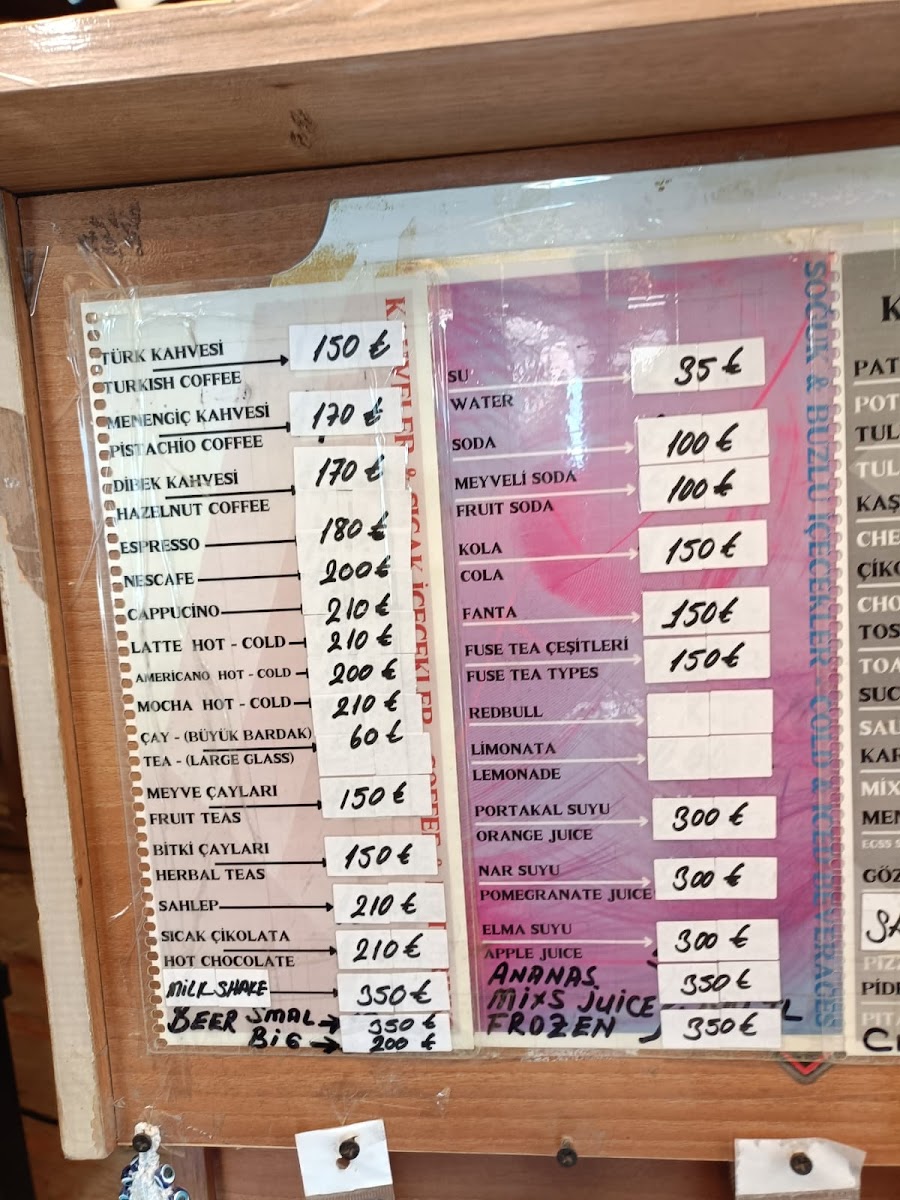 TÜRK KAHVESİ
TURKISH COFFEE 150 ₺
MENENGİÇ KAHVESİ
PİSTACHİO COFFEE 170 ₺
DİBEK KAHVESİ
HAZELNUT COFFEE 170 ₺
ESPRESSO 180 ₺
NESCAFE 200 ₺
CAPPUCİNO 210 ₺
LATTE HOT - COLD 210 ₺
AMERICANO HOT - COLD 200 ₺
MOCHA HOT - COLD 210 ₺
ÇAY - (BÜYÜK BARDAK)
TEA - (LARGE GLASS) 60 ₺
MEYVE ÇAYLARI
FRUIT TEAS 150 ₺
BİTKİ ÇAYLARI
HERBAL TEAS 150 ₺
SAHLEP 210 ₺
SICAK ÇİKOLATA
HOT CHOCOLATE 210 ₺
MİLKSHAKE 350 ₺
BEER SMAL 350 ₺
BİG 200 ₺
SU
WATER 35 ₺
SODA 100 ₺
MEYVELİ SODA
FRUIT SODA 100 ₺
KOLA
COLA 150 ₺
FANTA 150 ₺
FUSE TEA ÇEŞİTLERİ
FUSE TEA TYPES 150 ₺
REDBULL
LİMONATA
LEMONADE
PORTAKAL SUYU
ORANGE JUICE 300 ₺
NAR SUYU
POMEGRANATE JUICE 300 ₺
ELMA SUYU
APPLE JUICE 300 ₺
ANANAS 350 ₺
MİXS JUİCE
FROZEN 350 ₺
SOĞUK & BUZLU İÇECEKLER - COLD & ICED BEVERAGES
K
PAT
POT
TUL
TUL
KAŞ
CHE
ÇİKO
CHO
TOS
TOA
SUC
SAU
KAR
MİX
MEN
EGGS S
GÖZ
SA
PİZZ
PİDE
PITA